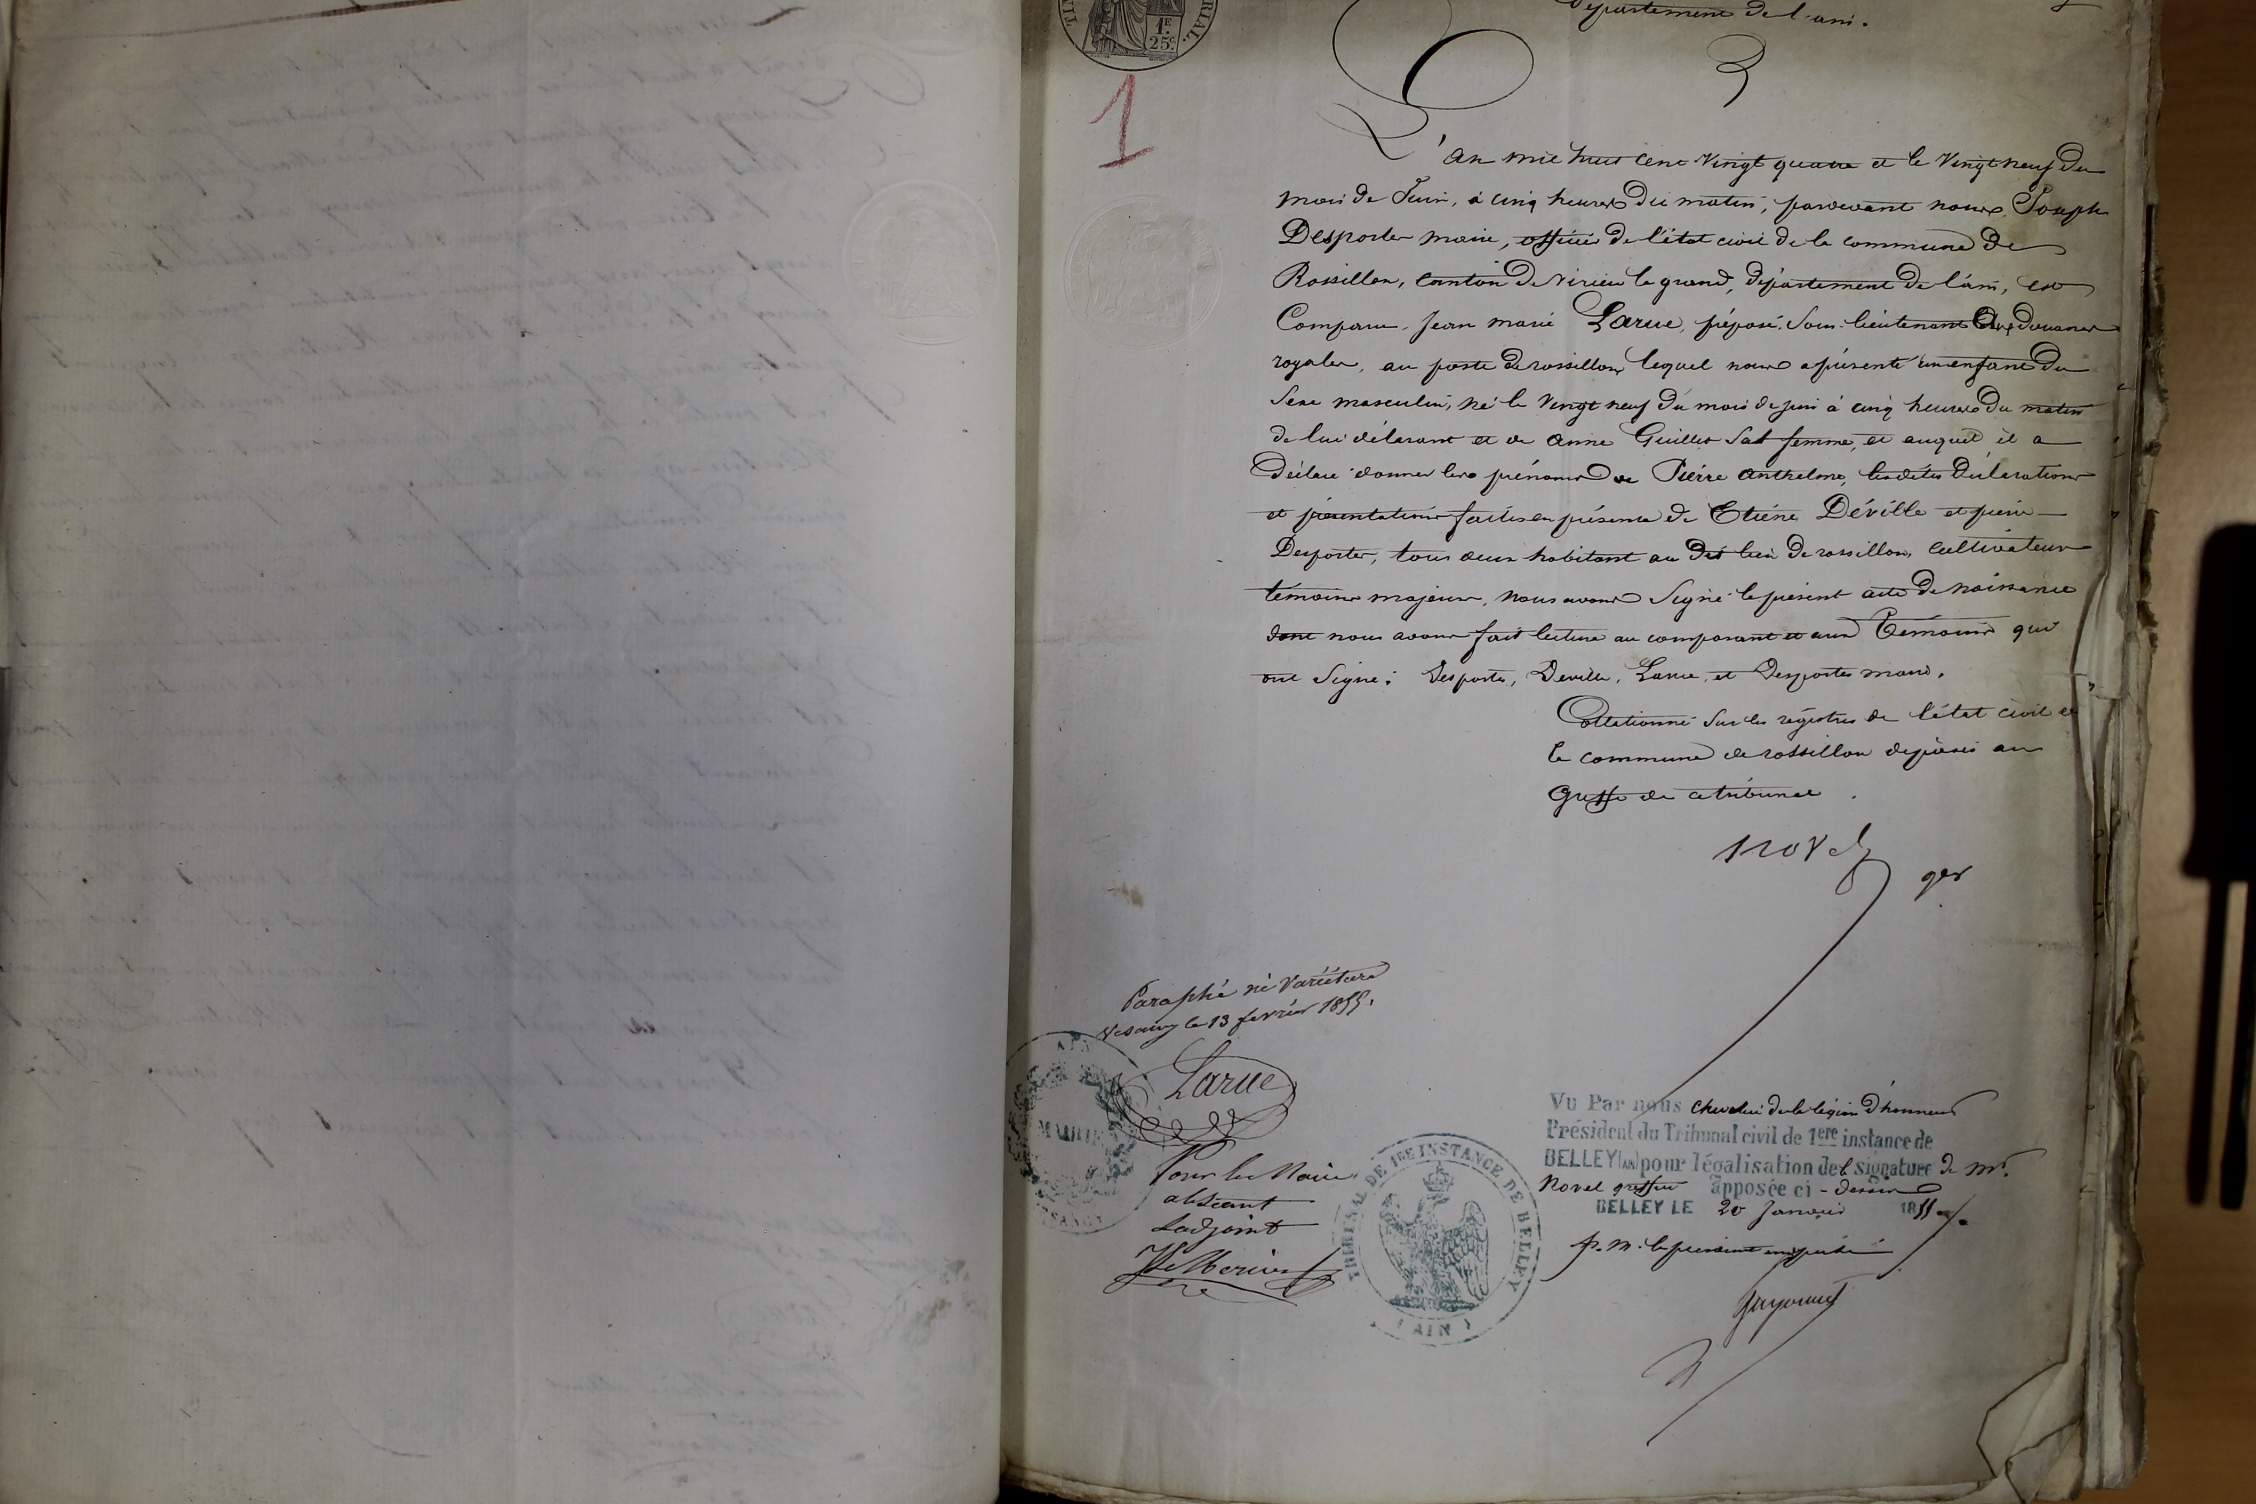 Département de l'ain.
TI RIAL.
1F.
25c.
1
L'an mil huit cent vingt quatre et le vingt neuf du
mois de Juin, à cinq heures du matin, pardevant nous Joseph
Desportes maire, officier de l'état civil de la commune de
Rossillon, canton de Virieu le grand, département de l'ain, est
Comparu Jean marie Larue, préposé, Sous-lieutenant des douanes
royales, au poste de rossillon, lequel nous a présenté un enfant du
Sexe masculin, né le vingt neuf du mois de juin à cinq heures du matin
de lui déclarant et de anne Guillet Sa femme, et auquel il a
déclaré donner les prénoms de Pierre anthelme, lesdites déclarations
et présentations faites en présence de Etiène Déville et pierre
Desportes, tous deux habitant au dit lieu de rossillon, cultivateurs
témoins majeurs, nous avons Signé le présent acte de naissance
dont nous avons fait lecture au comparant et aux Témoins qui
ont Signé: Desportes, Deville, Larue, et Desportes maire.
Collationné Sur les régistres de l'état civil de
la commune de rossillon déposés au
Greffe de ce tribunal.
Novel
ger
Paraphé nè Variètura
Vesancy le 13 février 1855.
Larue
MAIRIE
Pour le Maire
abscent
Ladjoint
TRIBUNAL DE 1ERE INSTANCE DE BELLEY
(AIN)
Vu Par nous chevalier de la légion d'honneur
Président du Tribunal civil de 1ere instance de
BELLEY (AIN) pour légalisation de la signature de Mr.
Novel greffier apposée ci-dessus
BELLEY LE 20 Janvier 1855.
p. M. le président empêché